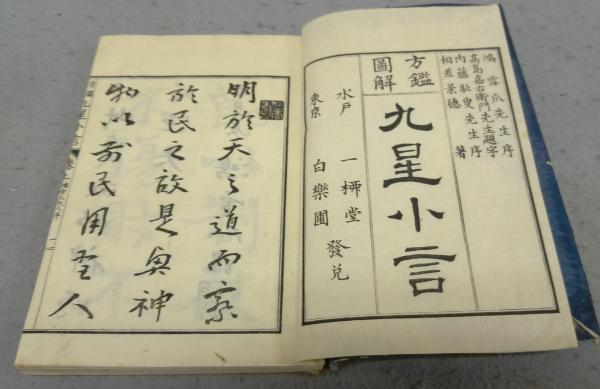 鴻雪爪先生序
高島嘉右衛門先生題字
内藤耻叟先生序
相差景德 著
方鑑
圖解
九星小言
水戸 一㭽堂
東京 白樂圃
發兌
明於天之道而察
於民之故是興神
物以前民用聖人